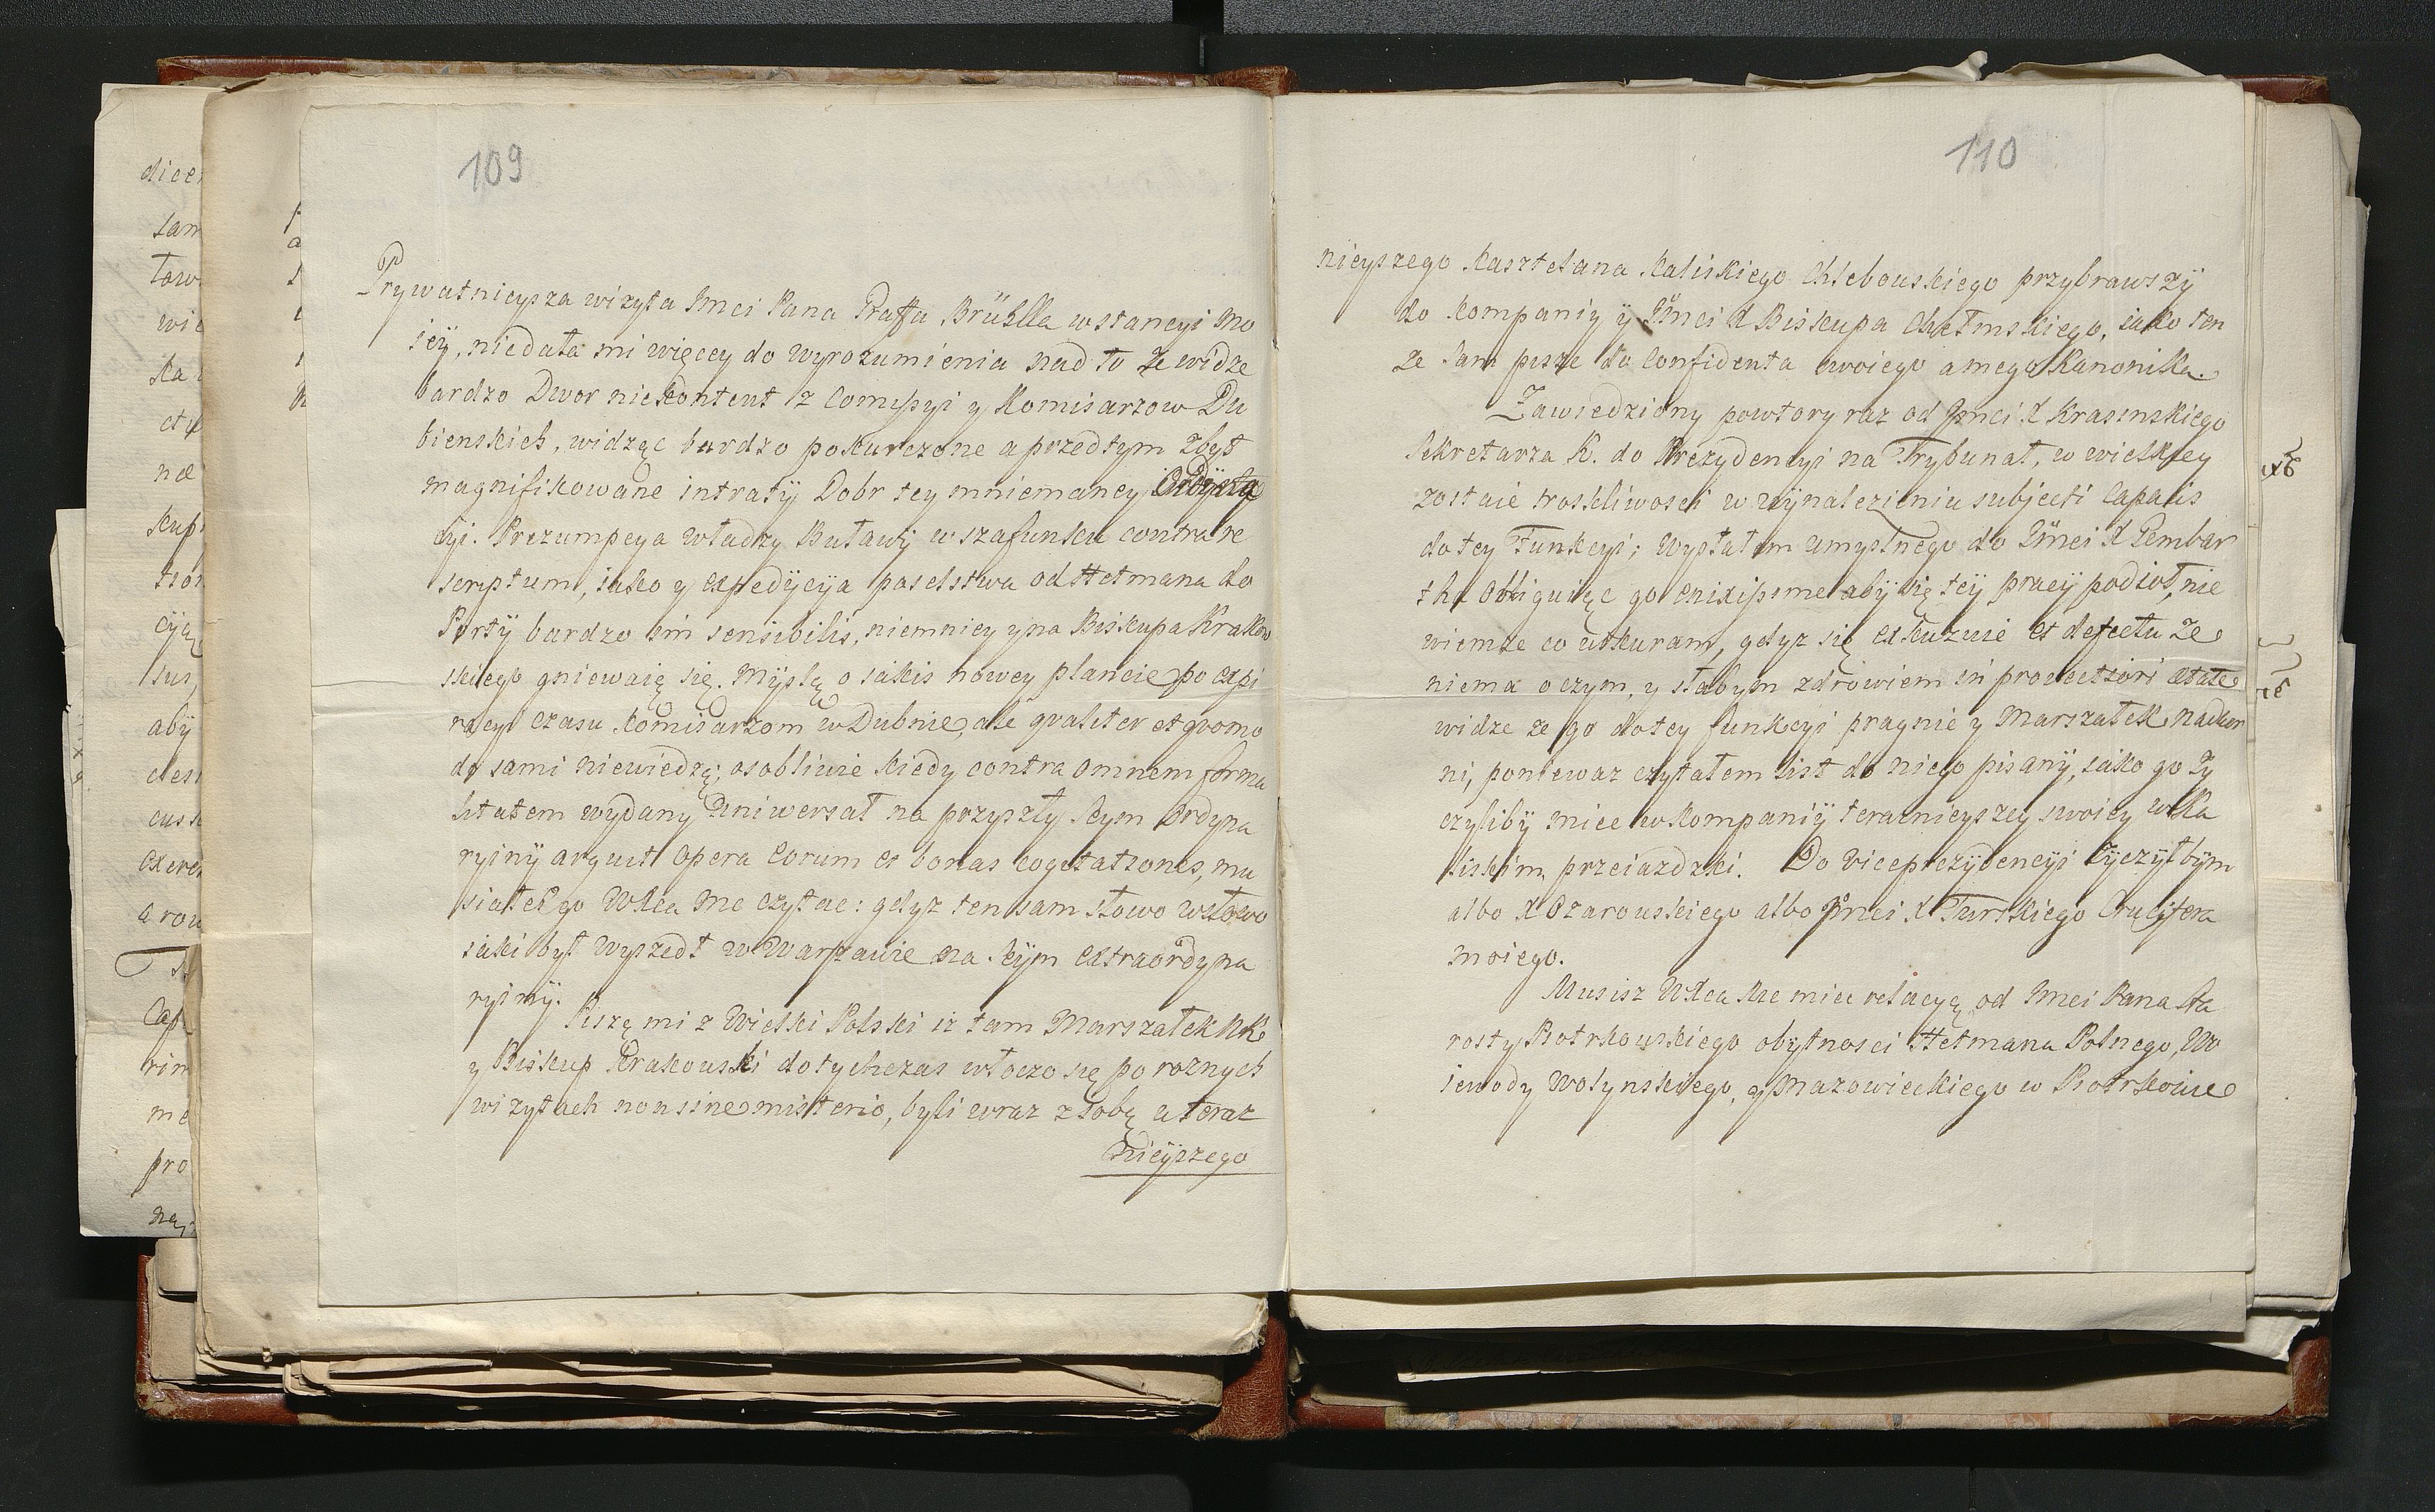 109
Prywatnieysza wizyta Jmci Pana Graffa Brühlla w stancyi mo
iey, niedała mi więcey do wyrozumienia nad to że widze
bardzo Dwor niekontent z Comissyi y Komisarzow Du
bienskich, widząc bardzo pokurczone a przedtym zbyt
magnifikowane intraty Dobr tey mniemaney Ordyna
cyi. Prezumpcya władzy Buławy w szafunku contra re
scriptum, iako y expedycyja poselstwa od Hetmana do
Porty bardzo im sensibilis, niemniey y na Biskupa Krakow
skiego gniewaią się. Myslą o iakis nowey plancie po expi
racyi czasu Komisarzom w Dubnie, ale qualiter et quomo
do sami niewiedzą; osobliwie kiedy contra omnem forma
litatem wydany Uniwersał na przyszły Seym Ordyna
ryiny arguit opera eorum et bonas cogitationes, mu
siałeś go WXca Mc czytac: gdyz ten sam słowo w słowo
iaki był wyszedł w Warszawie na Seym extraordyna
ryiny.
Piszą mi z Wielki Polski iz tam Marszałek NKo
y Biskup Krakowski dotychczas włoczo się po roznych
wizytach non sine misterio, byli wraz z sobą u teraz
nieyszego
110
nieyszego Kasztelana Kaliskiego Chlebowskiego przybrawszy
do kompaniy y Jmci X Biskupa Chełmskiego, iako ten
ze sam pisze do Confidenta swoiego a mego Kanonika.
Zawiedziony powtory raz od Jmci X Krasinskiego
Sekretarza K. do Prezydencyi na Trybunał, w wielkiey
zostaie troskliwosci w wynalezieniu subjecti capacis
do tey Funkcyi; Wysłałem umyslnego do Jmci X Gembar
tha obliguiąc go enixissime aby się tey pracy podioł, nie
wiem ze co wskuram, gdyz się exkuzuie ex defectu ze
niema o czym, y słabym zdrowiem in provectiori ætate
widze ze go do tey funkcyi pragnie y Marszałek Nadwor
ni, poniewaz czytałem list do niego pisany, iako go zy
czyliby miec w kompaniy teraznieyszey swoiey w Ka
liskim przeiazdzki. Do Viceprezydencyi zyczyłbym
albo X Ozarowskiego albo Jmci X Turskiego Crucifera
moiego.
Musisz WXca Mc miec relacyą od Jmci Pana Sta
rosty Piotrkowskiego obytnosci Hetmana Polnego, Wo
iewody Wołynskiego, y Mazowieckiego w Piotrkowie